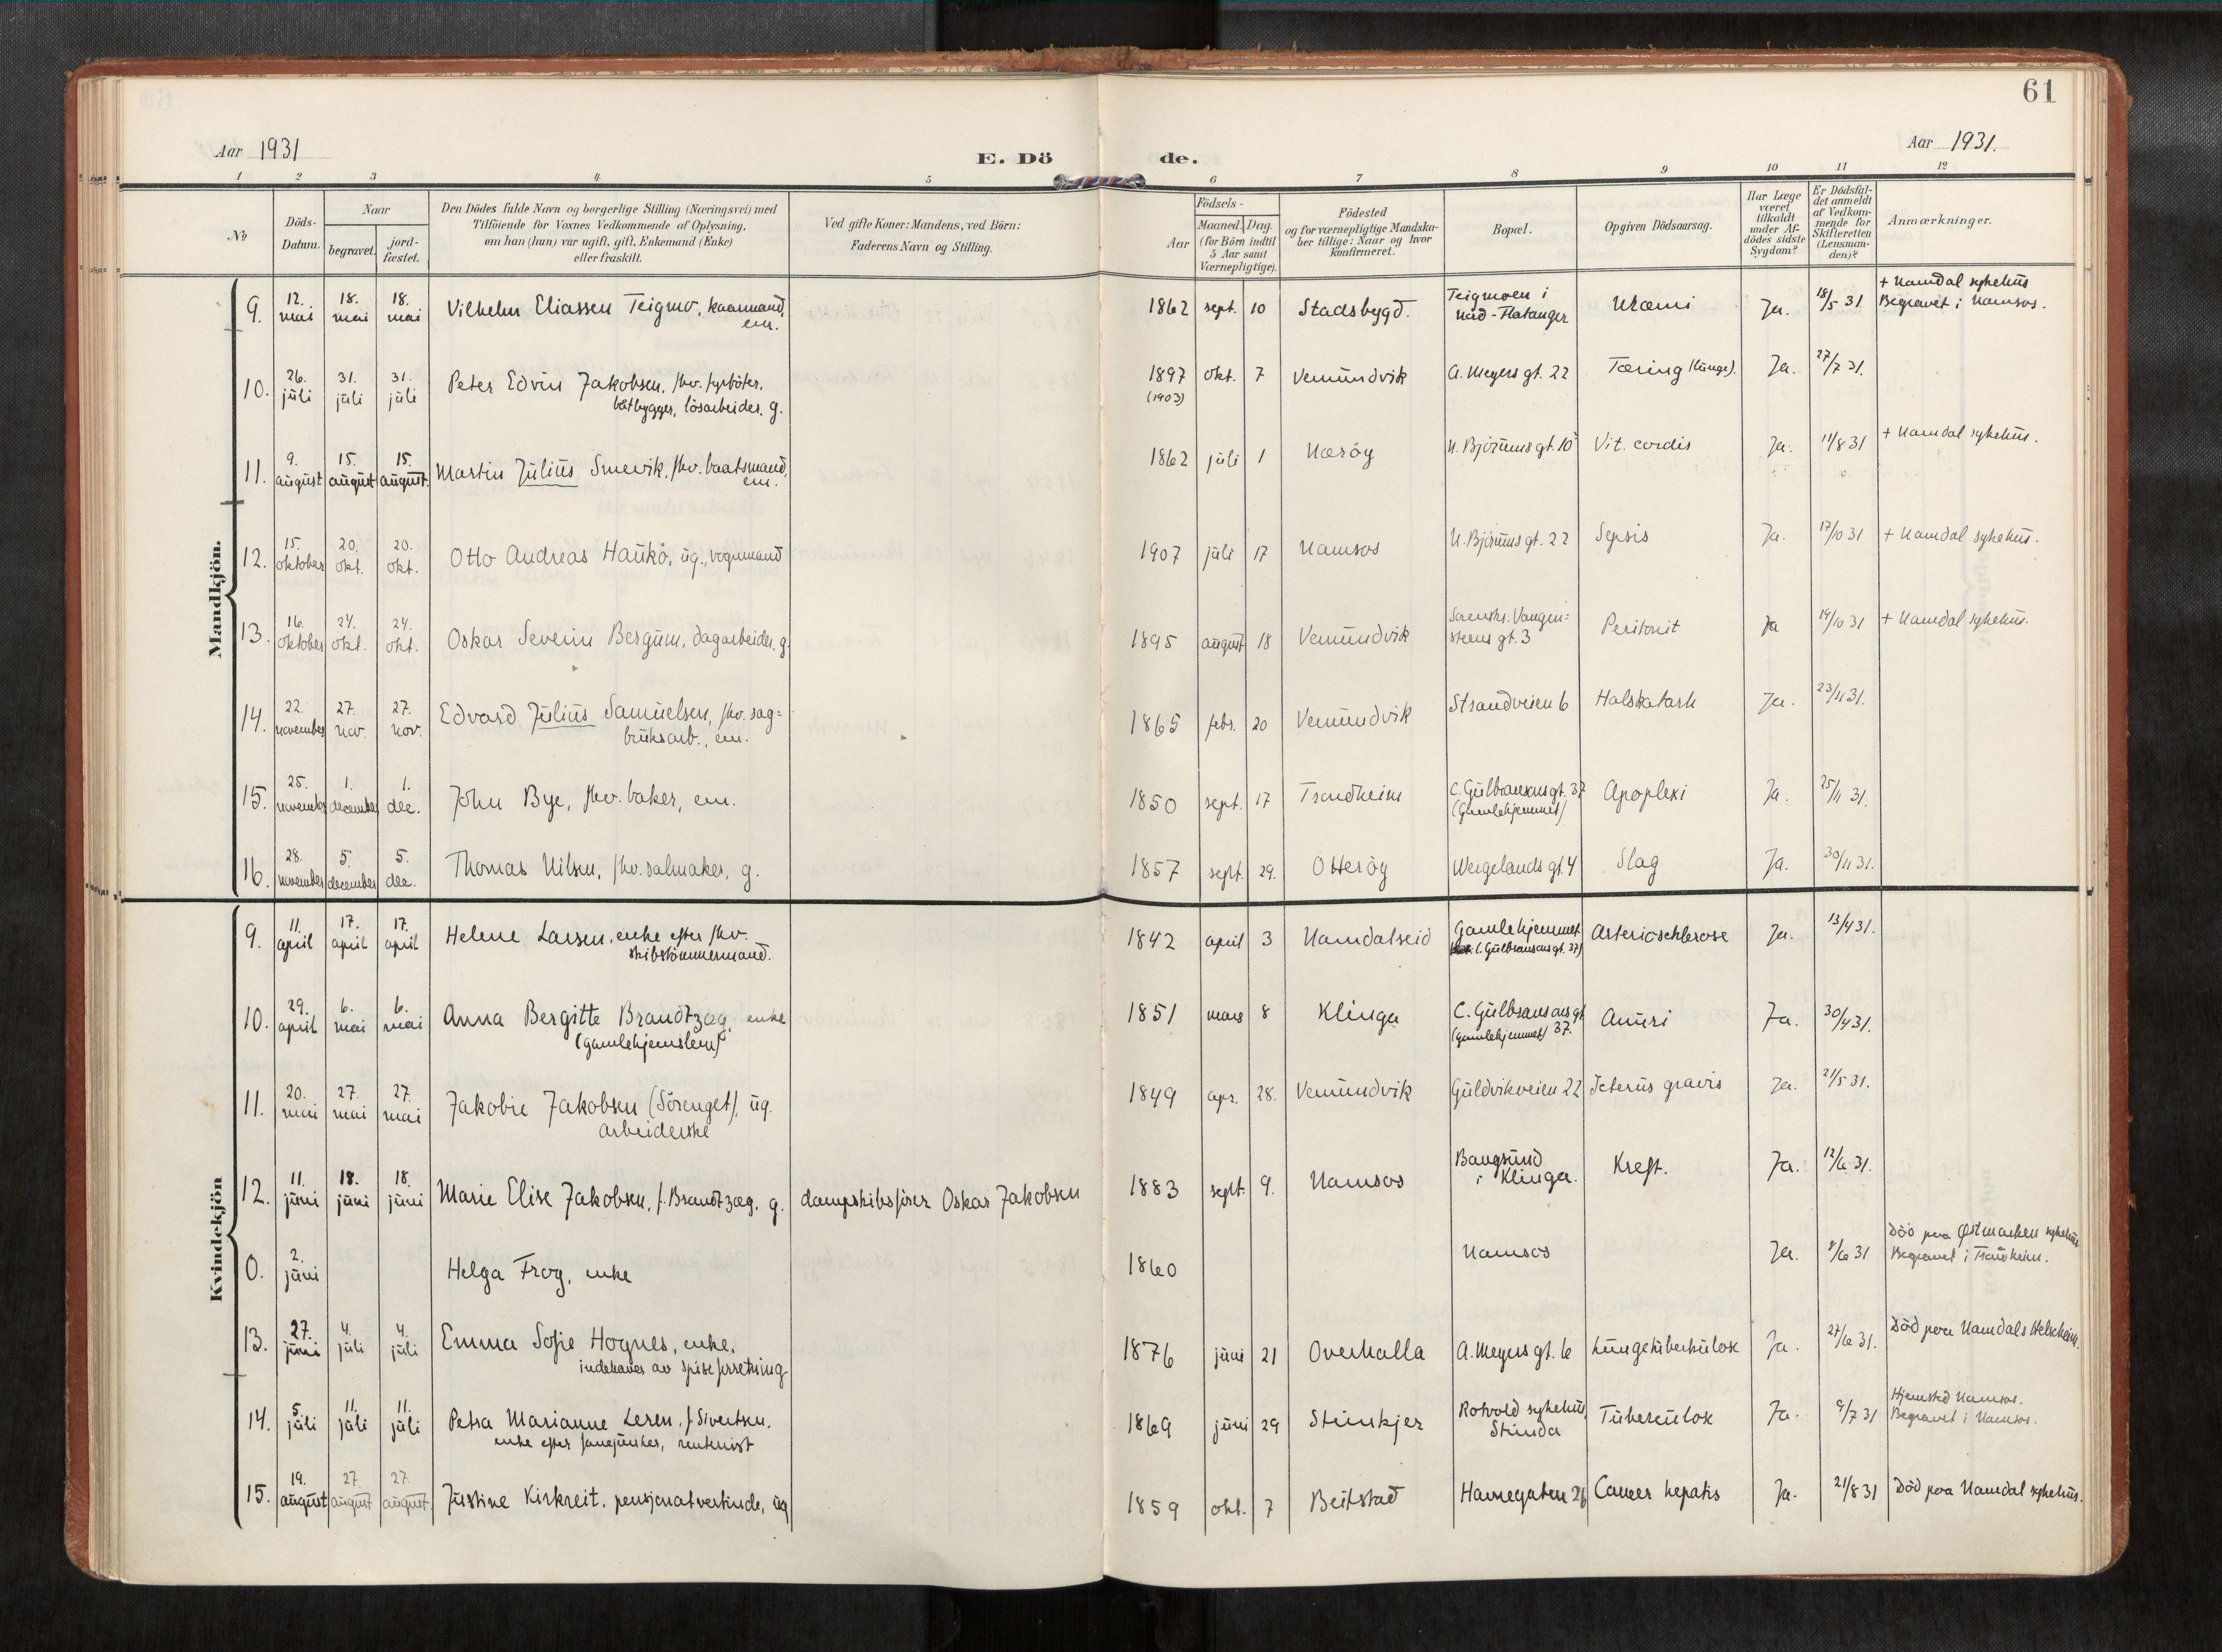 61
Aar 1931
E. Dö de.
Aar 1931.
1 2 3 4 5 6 7 8 9 10 11 12
№
Döds-
Datum.
Naar
begravet.
jord-
fæstet.
Den Dödes fulde Navn og borgerlige Stilling (Næringsvei) med
Tilföiende for Voxnes Vedkommende af Oplysning,
om han (hun) var ugift, gift, Enkemand (Enke)
eller fraskilt.
Ved gifte Koner: Mandens, ved Börn:
Faderens Navn og Stilling.
Födsels-
Aar
Maaned. Dag.
(for Börn indtil
5 Aar samt
Værnepligtige).
Födested
og for værnepligtige Mandska-
ber tillige: Naar og hvor
konfirmeret.
Bopæl.
Opgiven Dödsaarsag.
Har Læge
været
tilkaldt
under Af-
dödes sidste
Sygdom?
Er Dödsfal-
det anmeldt
af Vedkom-
mende for
Skifteretten
(Lensman-
den)?
Anmærkninger.
Mandkjön.
9. 12. mai 18. mai 18. mai Vilhelm Eliassen Teigmo, kaarmand, em. 1862 sept. 10 Stadsbygd. Teigmoen i Nord-Flatanger Uræmi Ja. 18/5 31 + Namdal sykehus Begravet i Namsos.
10. 26. juli 31. juli 31. juli Peter Edvin Jakobsen, fhv. fyrböter, båtbygger, lösarbeider, g. 1897 (1903) okt. 7 Vemundvik A. Meyers gt. 22 Tæring (lunge). Ja. 27/7 31.
11. 9. august 15. august 15. august. Martin Julius Smevik, fhv. baatsmand, em. 1862 juli 1 Næröy N. Bjørums gt. 10 Vit. cordis Ja. 11/8 31 + Namdal sykehus.
12. 15. oktober 20. okt. 20. okt. Otto Andreas Haukö, ug., vognmand 1907 juli 17 Namsos N. Bjørums gt. 22 Sepsis Ja. 17/10 31 + Namdal sykehus.
13. 16. oktober 24. okt. 24. okt. Oskar Severin Bergum, dagarbeider, g. 1895 august 18 Vemundvik gt. 3 Peritonit Ja 19/10 31 + Namdal sykehus.
14. 22. november 27. nov. 27. nov. Edvard Julius Samuelsen, fhv. sag= bruksarb., em. 1865 febr. 20 Vemundvik Strandveien 6 Halskatarh Ja. 23/11 31.
15. 25. november 1. december 1. dec. John Bye, fhv. baker, em. 1850 sept. 17 Trondheim C. Gulbransons gt. 37 (Gamlehjemmet) Apoplexi Ja. 25/11 31.
16. 28. november 5. december 5. dec. Thomas Nilsen, fhv. salmaker, g. 1857 sept. 29. Otteröy Wergelands gt. 4 Slag Ja. 30/11 31.
Kvindekjön
9. 11. april 17. april 17. april Helene Larsen, enke efter fhv. skibstömmermand. 1842 april 3 Namdalseid Gamlehjemmet (C. Gulbransons gt. 37) Arterioschlerose Ja. 13/4 31.
10. 29. april 6. mai 6. mai Anna Bergitte Brandtzæg, enke (gamlehjemslem) 1851 mars 8 Klinga C. Gulbransons gt (gamlehjemmet) 37. Anuri Ja. 30/4 31.
11. 20. mai 27. mai 27. mai Jakobie Jakobsen (Sörenget), ug. arbeiderske 1849 apr. 28. Vemundvik Guldvikveien 22 Icterus gravis Ja. 21/5 31.
12. 11. juni 18. juni 18. juni Marie Elise Jakobsen, f. Brandtzæg, g. dampskibsfører Oskar Jakobsen 1883 sept. 9. Namsos Bangsund i Klinga. Kreft. Ja. 12/6 31.
0. 2. juni Helga Frog, enke 1860 Namsos Ja. 8/6 31 Död paa Østmarken sykehus Begravet i Trondheim.
13. 27. juni 4. juli 4. juli Emma Sofie Hognes, enke, indehaver av spiseforretning 1876 juni 21 Overhalla A. Meyers gt. 6 Lungetuberkulose Ja. 27/6 31. Död paa Namdals Helseheim.
14. 5. juli 11. juli 11. juli Petra Marianne Leren, f. Sivertsen, enke efter fanejunker, rentenist 1869 juni 29 Steinkjer Rotvold sykehus, Strinda Tuberkulose Ja. 9/7 31 Hjemsted Namsos. Begravet i Namsos.
15. 19. august 27. august 27. august. Justine Kirkreit, pensjonatvertinde, ug 1859 okt. 7 Beitstad Havnegaten 26 Cancer hepatis Ja. 21/8 31 Död paa Namdal sykehus.